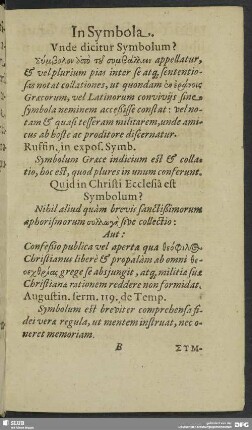 In Symbola.
Vnde dicitur Symbolum?
Σύμβολον ἀπὸ τῦ συμβάλλειν appellatur,
& vel plurium pias inter se atq, sententio-
sas notat collationes, ut quondam
Græcorum, vel Latinorum convivijs sine
symbola neminem accessisse constat: vel no-
tam & quasi tesseram militarem, unde ami-
cus ab hoste ac proditore discernatur.
Ruffin. in expos. Symb.
Symbolum Græce indicium est & colla-
tio, hoc est, quod plures in unum conferunt.
Quid in Christi Ecclesiâ est
Symbolum?
Nihil aliud quàm brevis sanctissimorum
aphorismorum συλλογὴ sive collectio:
Aut:
Confessio publica vel aperta qua
Christianus liberè & propalàm ab omni
grege se absjungit, atq, militiæ suæ
Christianæ rationem reddere non formidat.
Augustin. serm. 119. de Temp.
Symbolum est breviter comprehensa fi-
dei vera regula, ut mentem instruat, nec o-
neret memoriam.
B ΣΥΜ-
SLUB